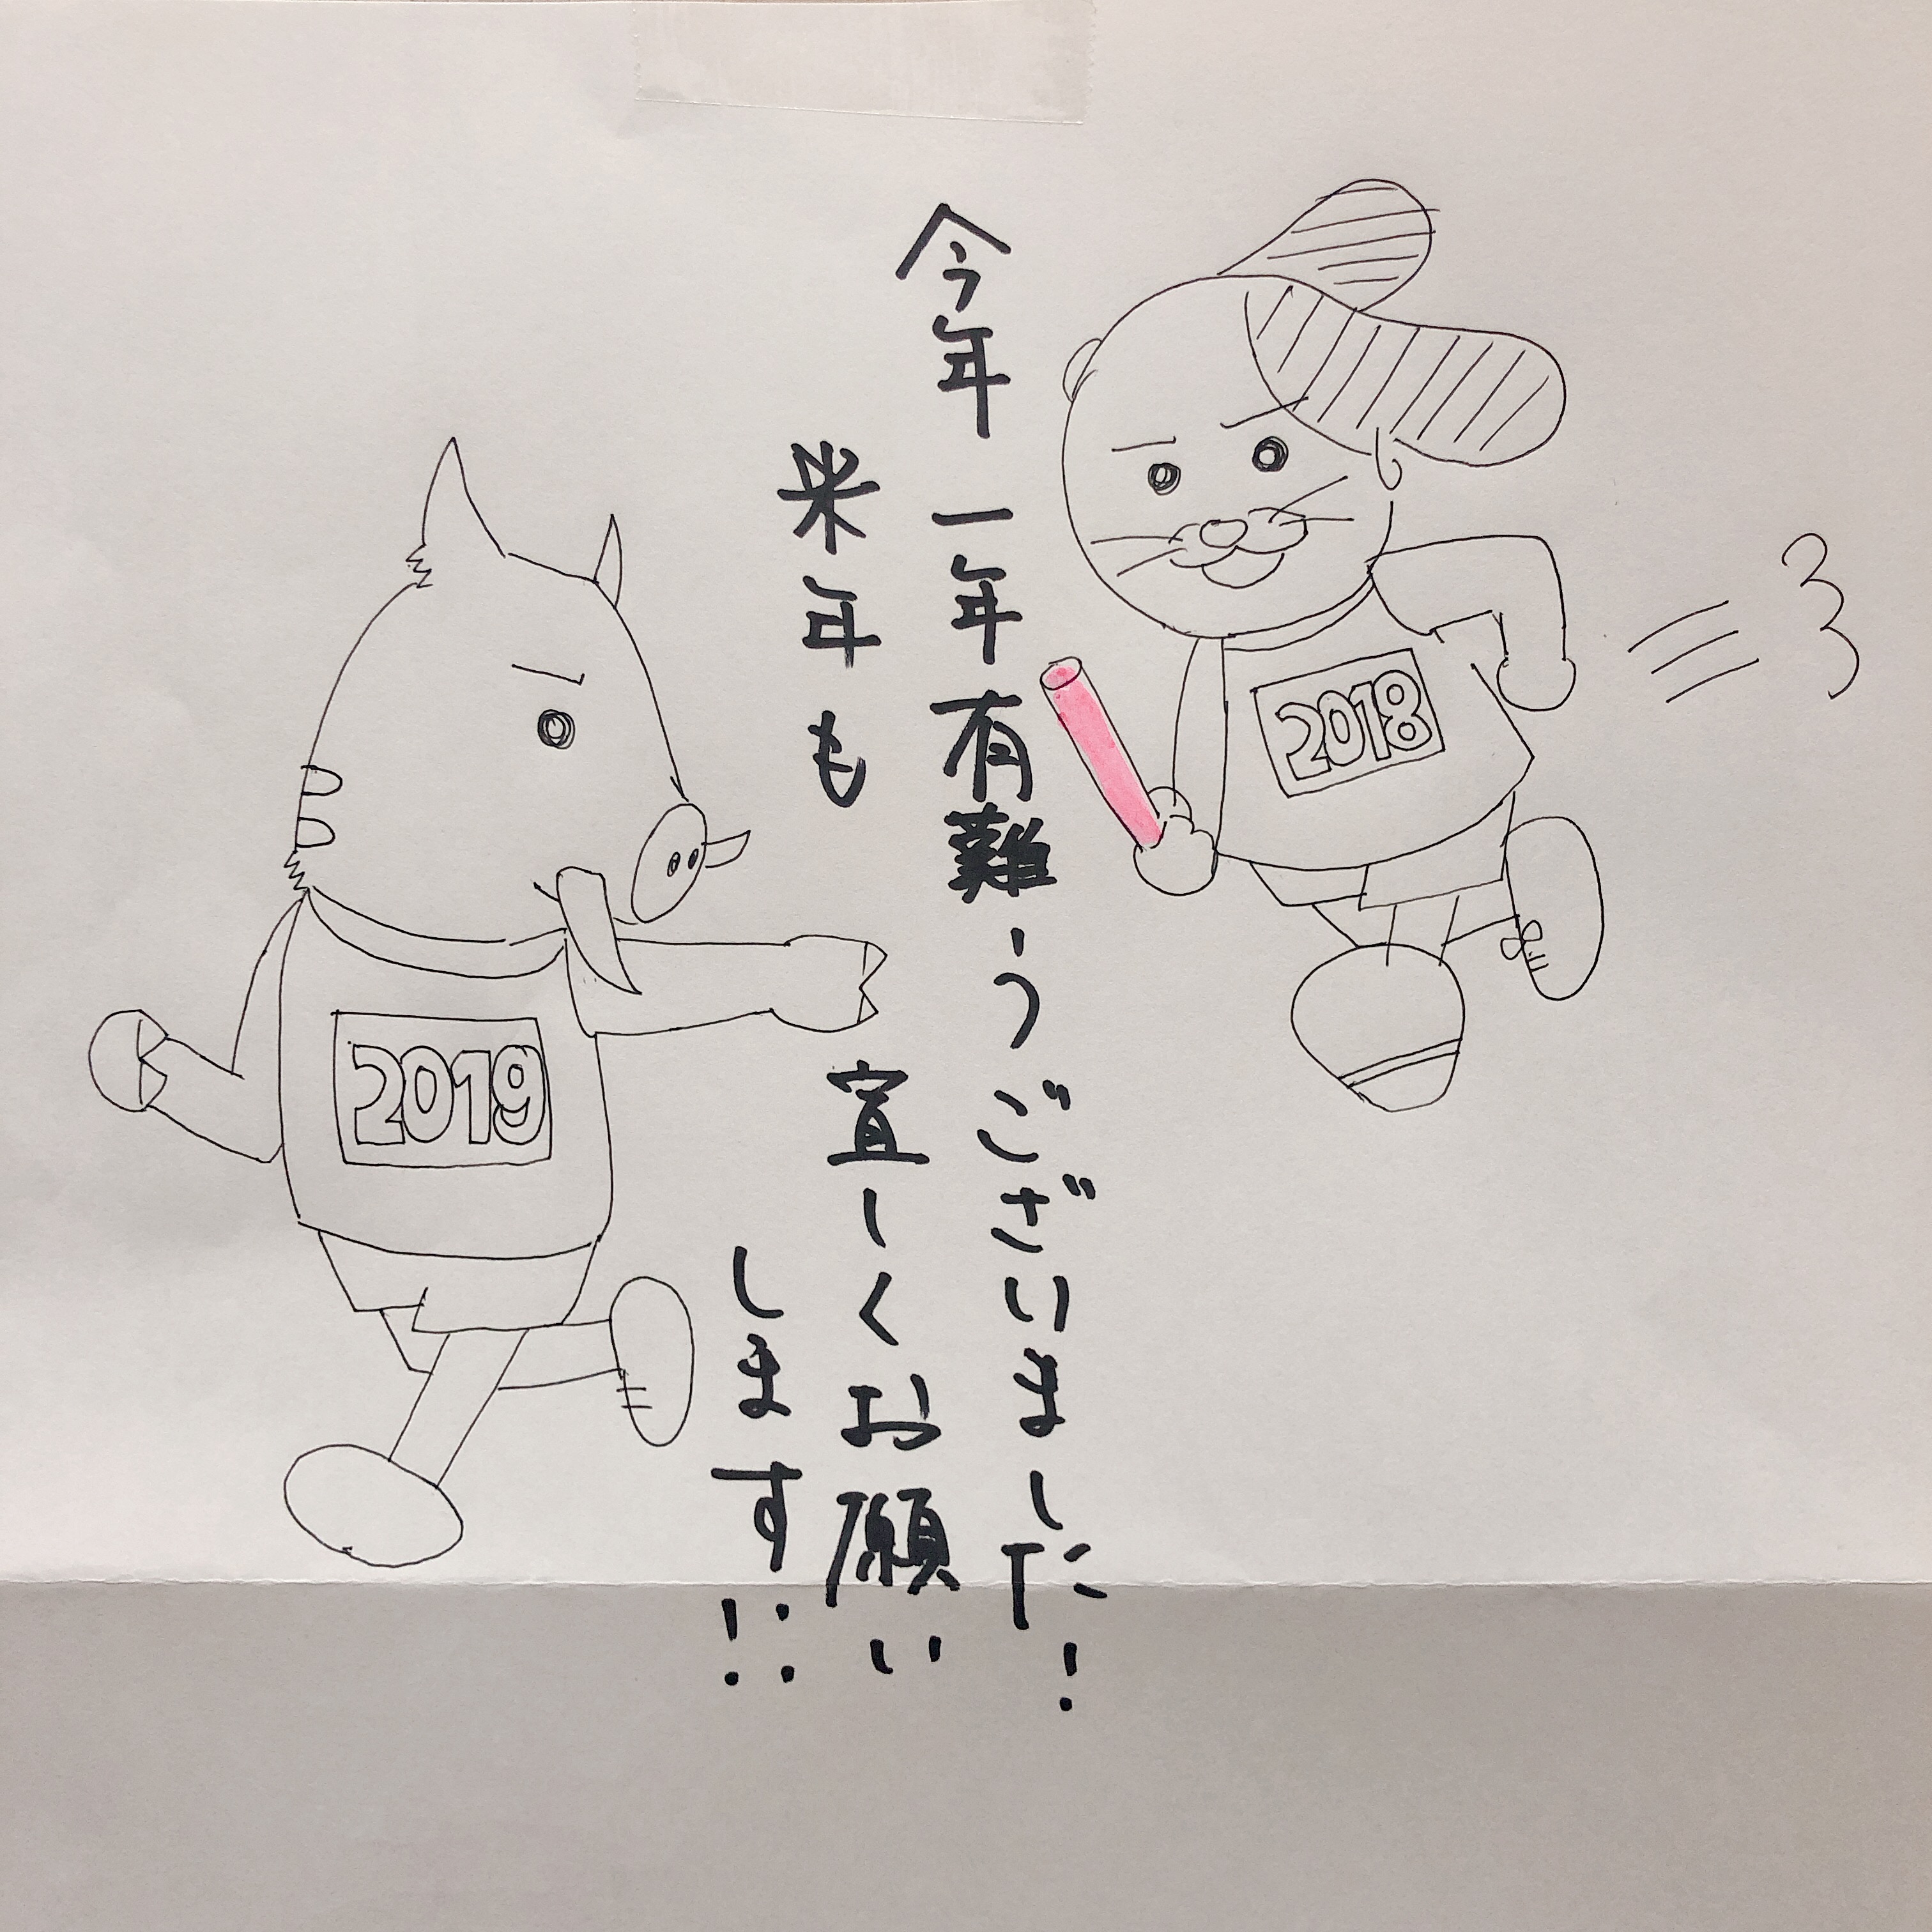 今年一年有難うございました!
来年も宜しくお願い
します!!
2018
2019